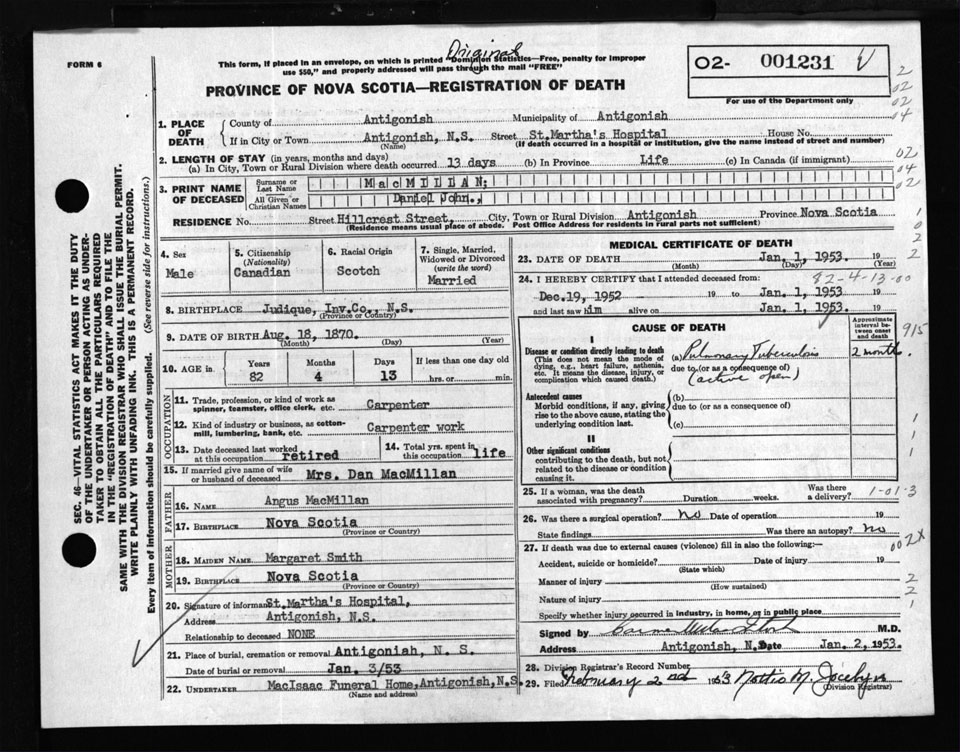 FORM 6
Original
This form, if placed in an envelope, on which is printed "Dominion Statistics—Free, penalty for improper
use $50," and properly addressed will pass through the mail "FREE"
O2- 001231 V
For use of the Department only
PROVINCE OF NOVA SCOTIA—REGISTRATION OF DEATH
1. PLACE OF DEATH
County of Antigonish Municipality of Antigonish
If in City or Town Antigonish, N.S. Street St.Martha's Hospital House No.
(Name) (If death occurred in a hospital or institution, give the name instead of street and number)
2. LENGTH OF STAY (in years, months and days)
(a) In City, Town or Rural Division where death occurred 13 days (b) In Province Life (c) In Canada (if immigrant)
3. PRINT NAME OF DECEASED
Surname or Last Name MacMILLAN;
All Given or Christian Names Daniel John.,
RESIDENCE No. Street Hillcrest Street, City, Town or Rural Division Antigonish Province Nova Scotia
(Residence means usual place of abode. Post Office Address for residents in rural parts not sufficient)
4. Sex Male
5. Citizenship (Nationality) Canadian
6. Racial Origin Scotch
7. Single, Married, Widowed or Divorced (write the word) Married
8. BIRTHPLACE Judique, Inv.Co., N.S.
(Province or Country)
9. DATE OF BIRTH Aug. 18, 1870.
(Month) (Day) (Year)
10. AGE in Years 82 Months 4 Days 13 If less than one day old hrs. or min.
OCCUPATION
11. Trade, profession, or kind of work as spinner, teamster, office clerk, etc. Carpenter
12. Kind of industry or business, as cotton-mill, lumbering, bank, etc. Carpenter work
13. Date deceased last worked at this occupation retired
14. Total yrs. spent in this occupation life
15. If married give name of wife or husband of deceased Mrs. Dan MacMillan
FATHER
16. NAME Angus MacMillan
17. BIRTHPLACE Nova Scotia
(Province or Country)
MOTHER
18. MAIDEN NAME Margaret Smith
19. BIRTHPLACE Nova Scotia
(Province or Country)
20. Signature of informant St.Martha's Hospital,
Address Antigonish, N.S.
Relationship to deceased NONE
21. Place of burial, cremation or removal Antigonish, N. S.
Date of burial or removal Jan. 3/53
22. UNDERTAKER MacIsaac Funeral Home, Antigonish, N.S.
(Name and address)
MEDICAL CERTIFICATE OF DEATH
23. DATE OF DEATH Jan. 1, 1953. 19
(Month) (Day) (Year)
82-4-13-00
24. I HEREBY CERTIFY that I attended deceased from:
Dec.19, 1952 19 to Jan. 1, 1953. 19
and last saw him alive on Jan. 1, 1953. 19
CAUSE OF DEATH
Approximate interval between onset and death
I
Disease or condition directly leading to death
(This does not mean the mode of dying, e.g., heart failure, asthenia, etc. It means the disease, injury, or complication which caused death.)
(a) Pulmonary Tuberculosis 2 months.
due to (or as a consequence of)
(active open)
Antecedent causes
Morbid conditions, if any, giving rise to the above cause, stating the underlying condition last.
(b)
due to (or as a consequence of)
(c)
II
Other significant conditions
contributing to the death, but not related to the disease or condition causing it.
25. If a woman, was the death associated with pregnancy? Duration weeks. Was there a delivery?
1-01-3
26. Was there a surgical operation? no Date of operation 19
State findings Was there an autopsy? no
27. If death was due to external causes (violence) fill in also the following:
Accident, suicide or homicide? Date of injury 19
(State which)
Manner of injury
(How sustained)
Nature of injury
Specify whether injury occurred in industry, in home, or in public place
Signed by M.D.
Address Antigonish, N.S. Date Jan. 2, 1953.
28. Division Registrar's Record Number
29. Filed February 2nd 1953
(Division Registrar)
2
02
02
04
02
04
02
1
0
2
2
915
1
1
1
002X
2
2
1
SEC. 46—VITAL STATISTICS ACT MAKES IT THE DUTY
OF THE UNDERTAKER OR PERSON ACTING AS UNDER-
TAKER TO OBTAIN ALL THE PARTICULARS REQUIRED
IN THE "REGISTRATION OF DEATH" AND TO FILE THE
SAME WITH THE DIVISION REGISTRAR WHO SHALL ISSUE THE BURIAL PERMIT.
WRITE PLAINLY WITH UNFADING INK. THIS IS A PERMANENT RECORD.
Every item of information should be carefully supplied. (See reverse side for instructions.)